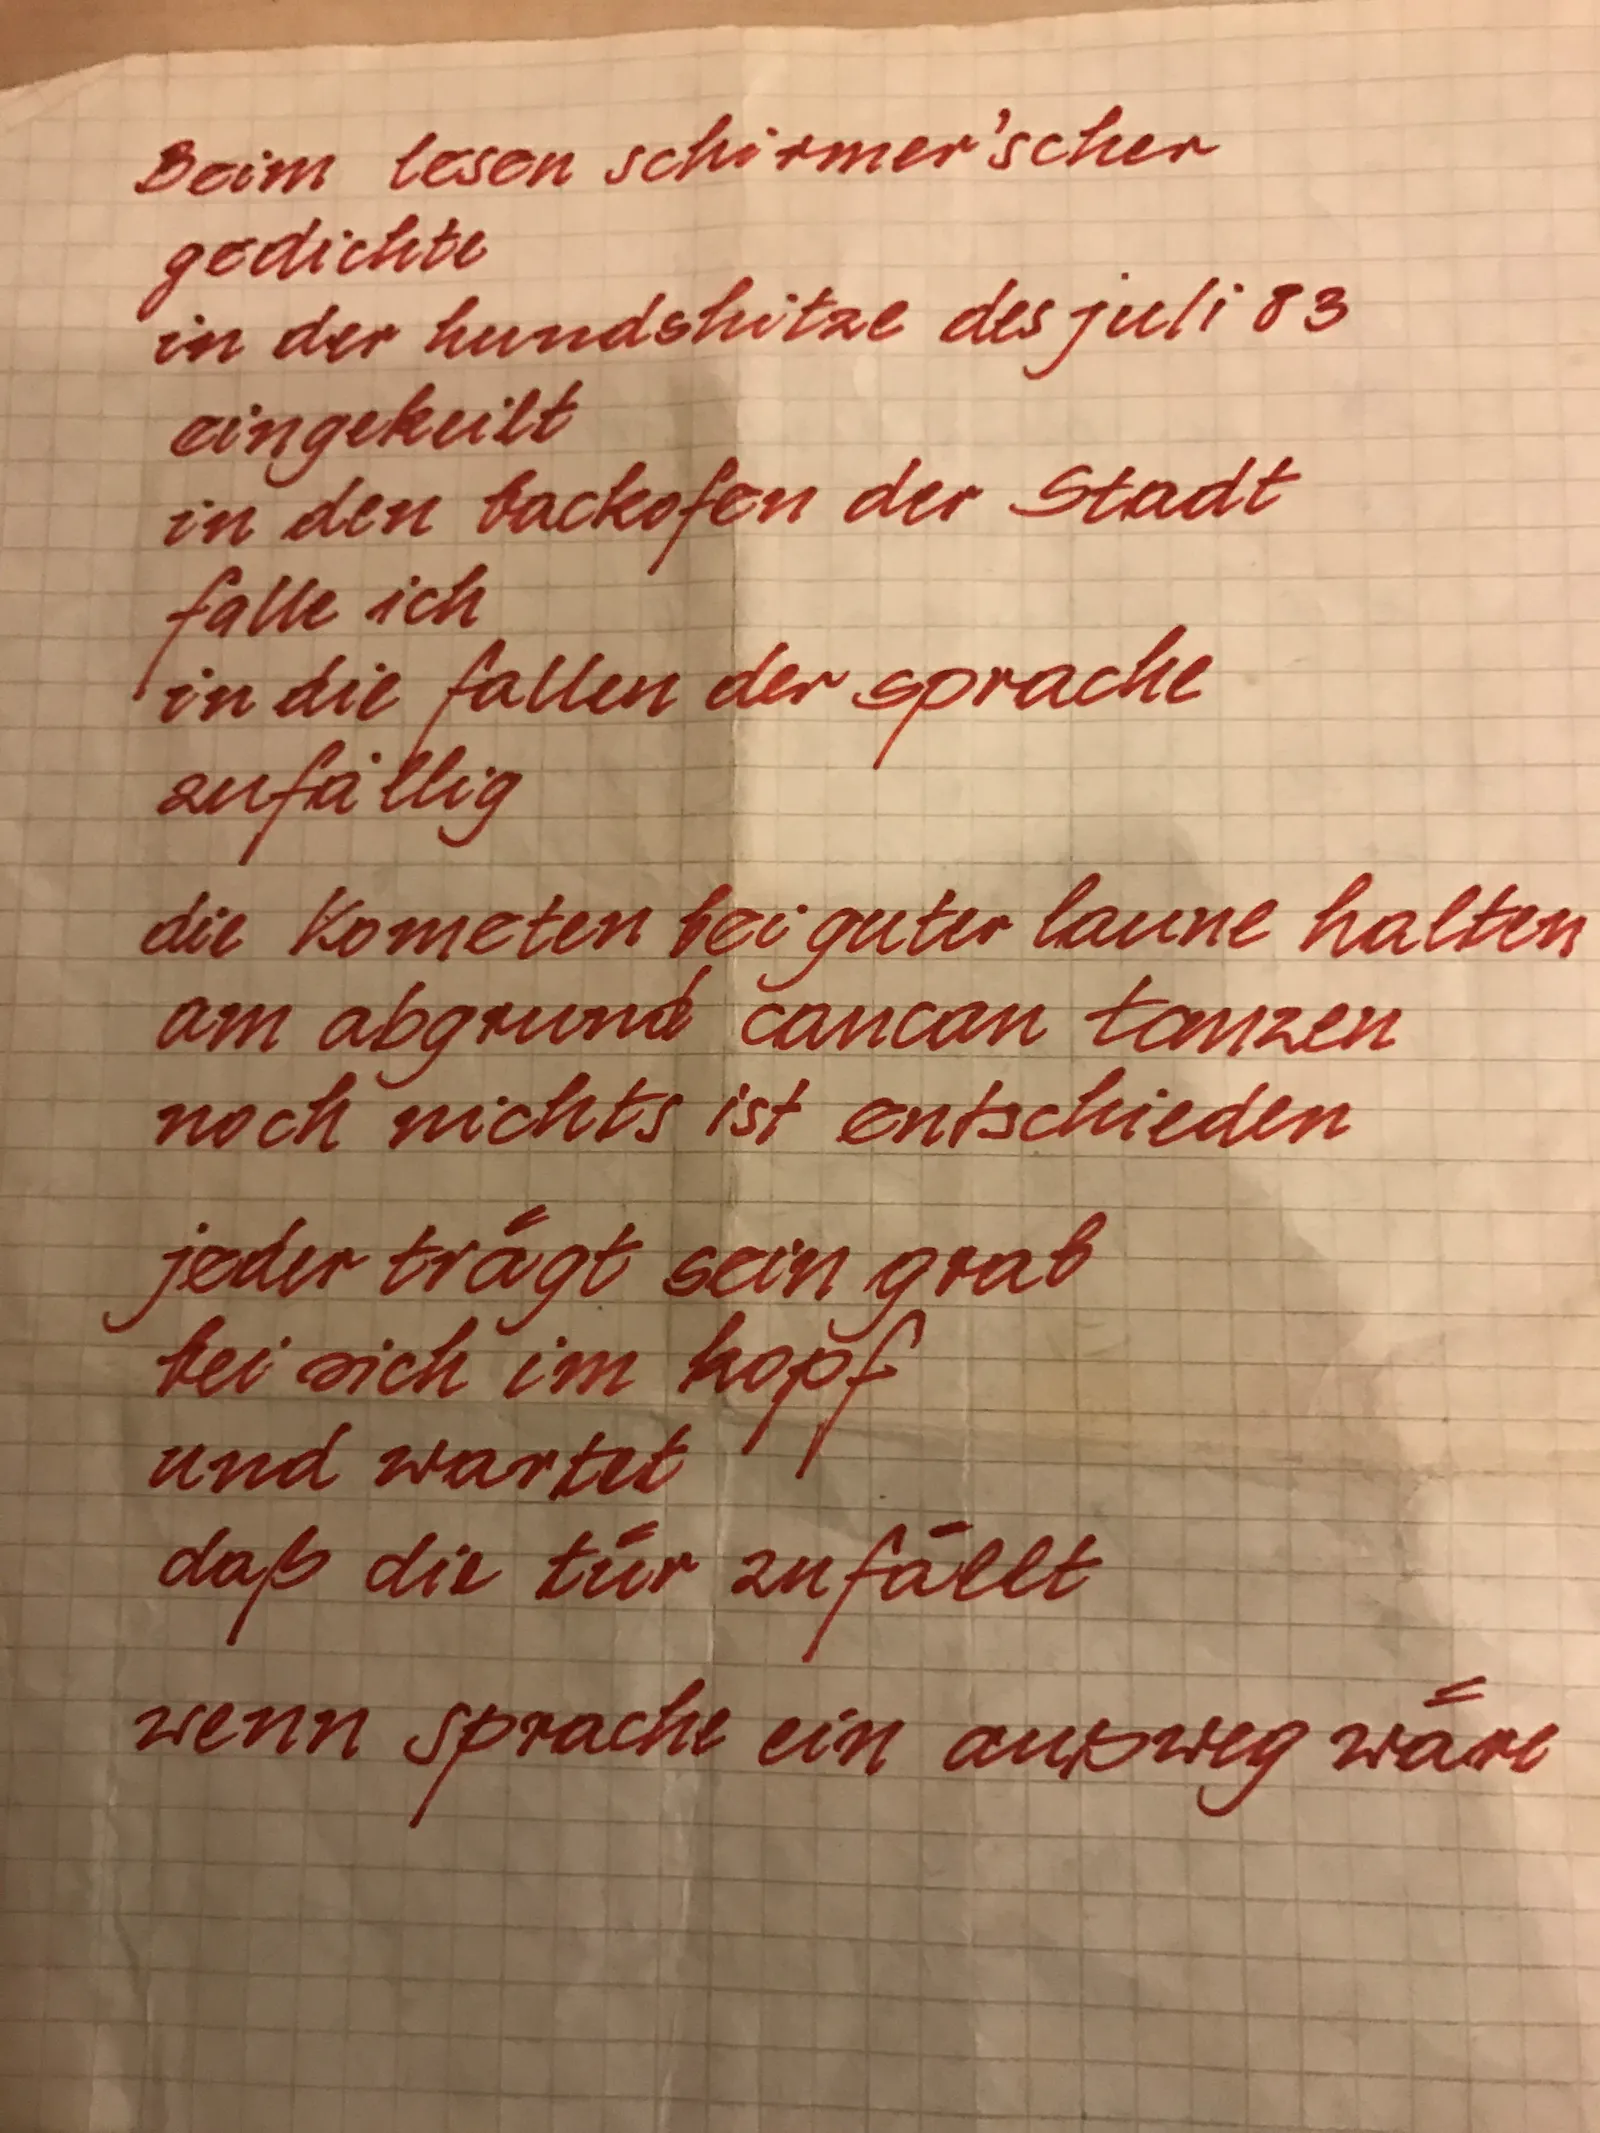 Beim lesen schirmer'scher
gedichte
in der hundshitze des juli 83
eingekeilt
in den backofen der Stadt
falle ich
in die fallen der sprache
zufällig
die Kometen bei guter laune halten
am abgrund cancan tanzen
noch nichts ist entschieden
jeder trägt sein grab
bei sich im kopf
und wartet
daß die tür zufällt
wenn sprache ein außweg wäre